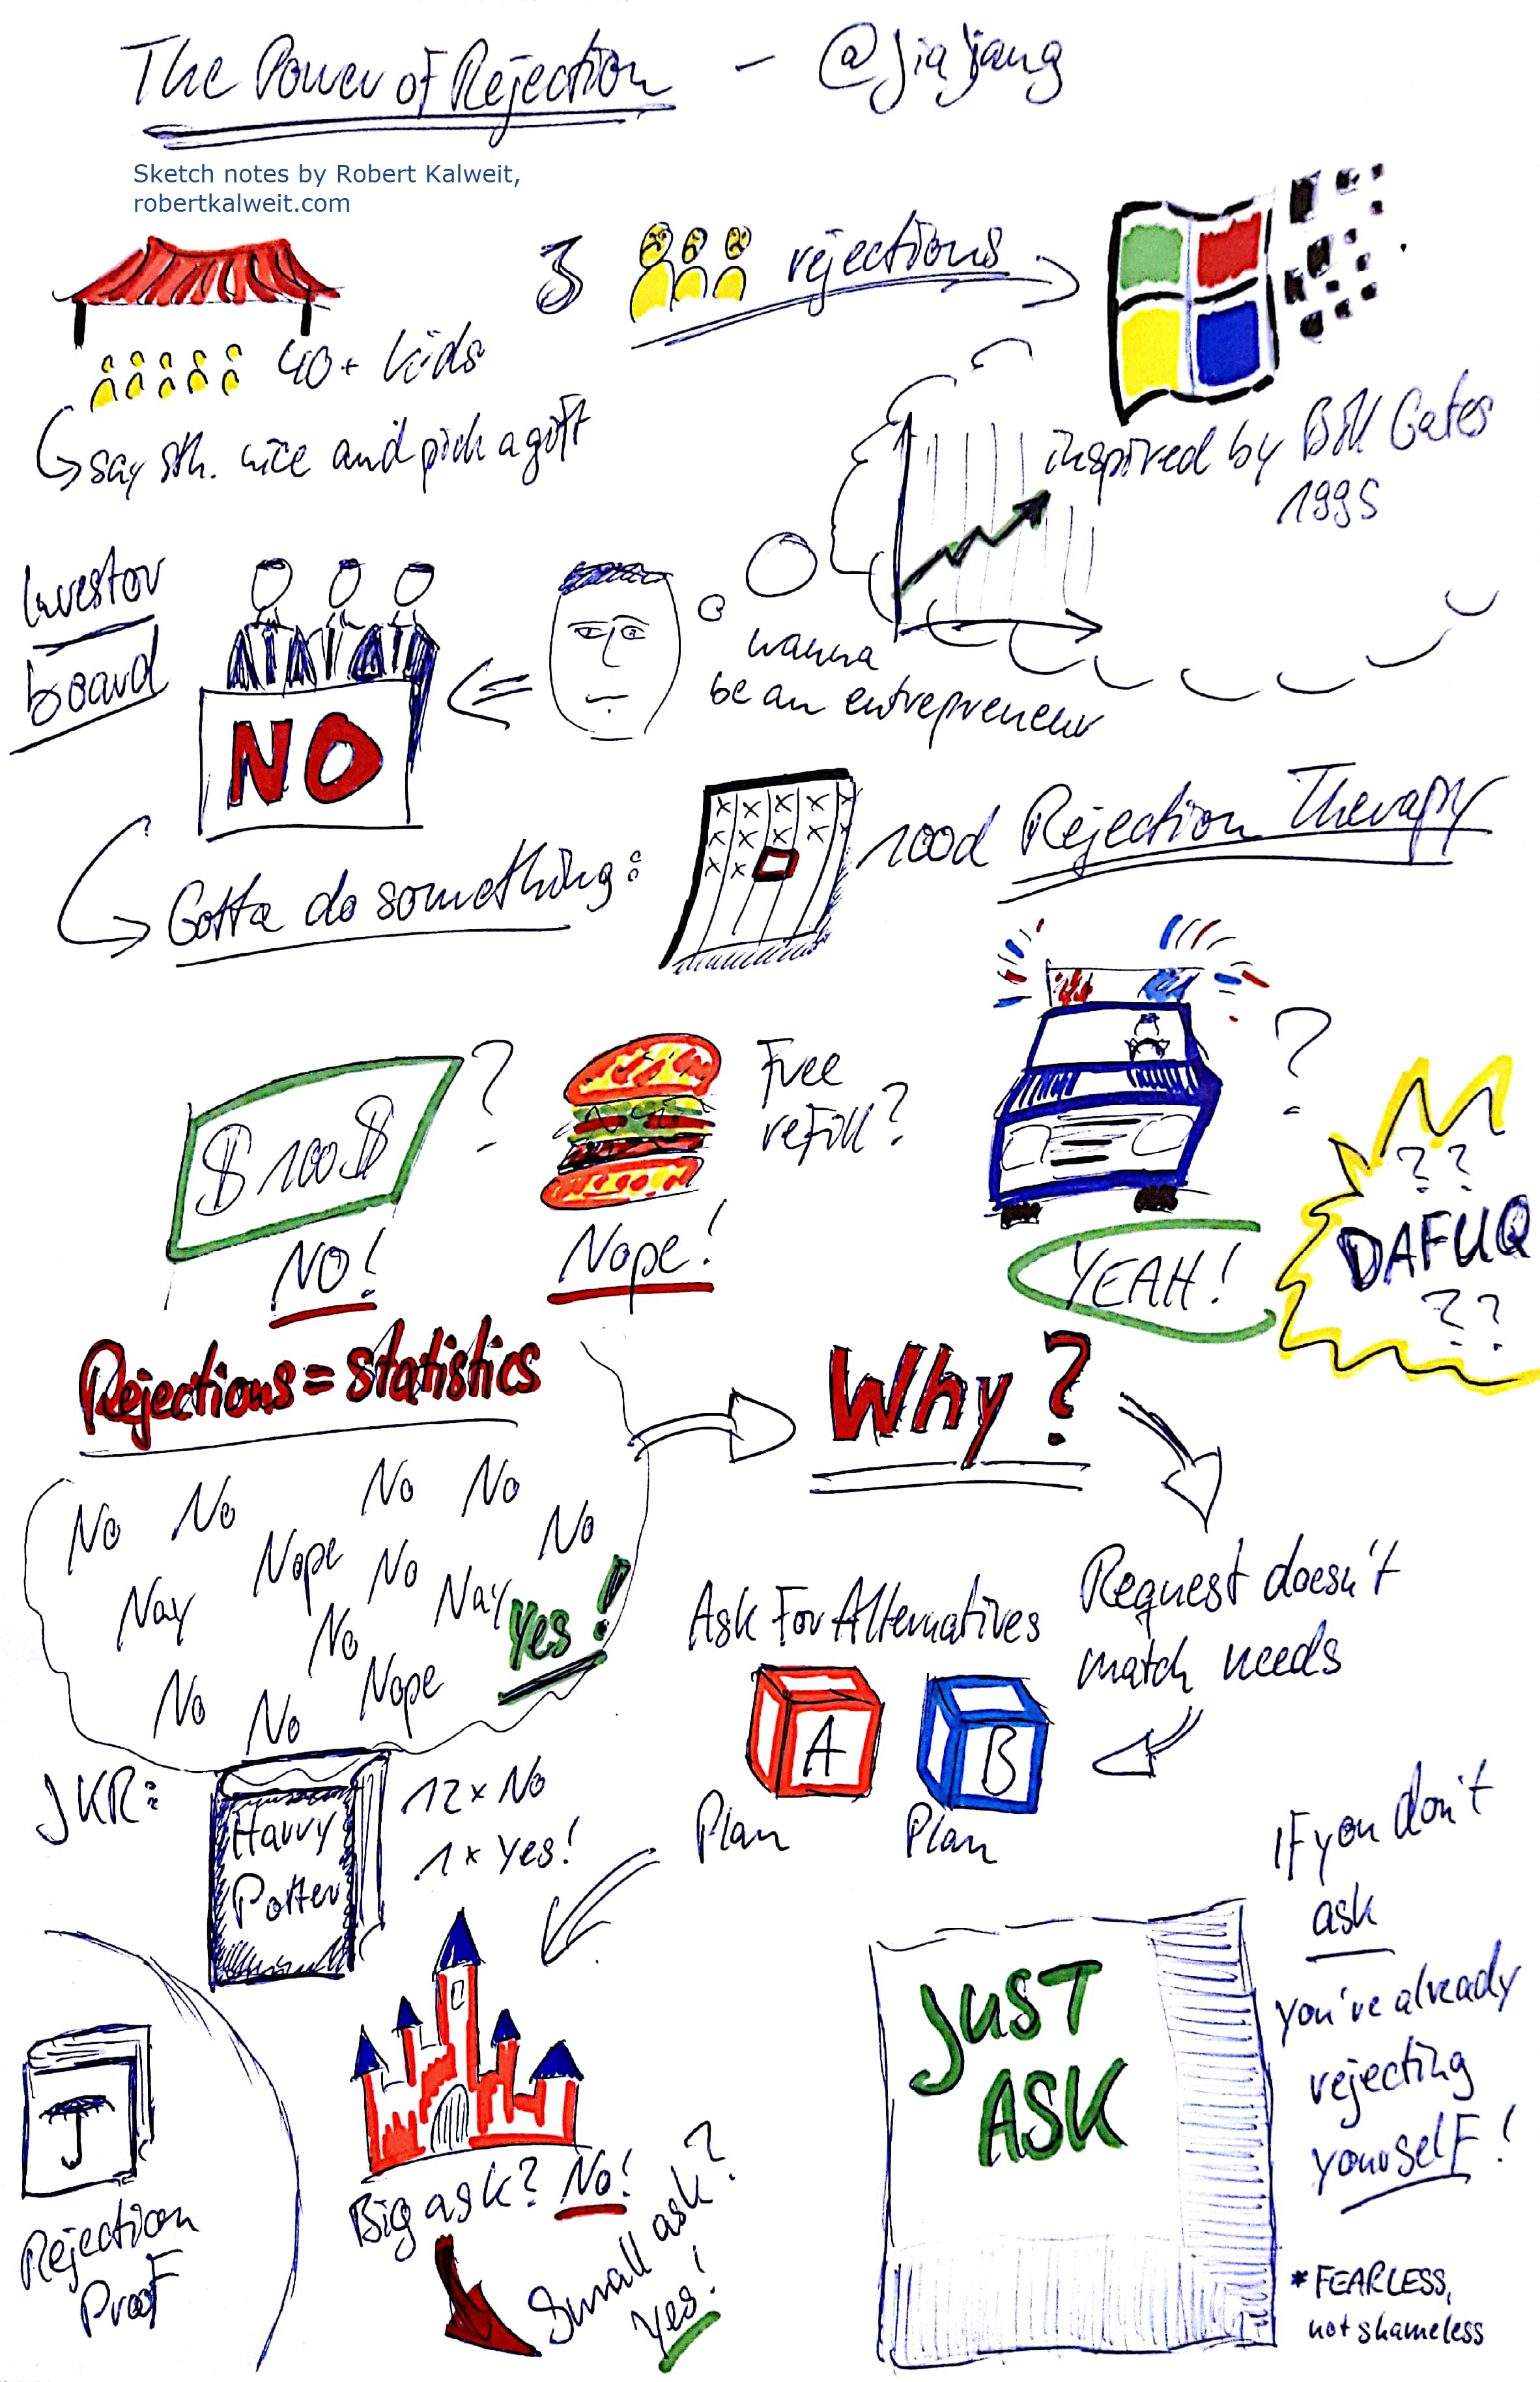 The Power of Rejection - @jiajiang
Sketch notes by Robert Kalweit,
robertkalweit.com
3 rejections
40+ kids
say sth. nice and pick a gift
inspired by Bill Gates
1995
Investor
board
NO
wanna
be an entrepreneur
Gotta do something:
100d Rejection Therapy
$100$
?
NO!
Free
refill?
Nope!
?
YEAH!
??
DAFUQ
??
Rejections = statistics
Why?
No No No No
No Nope No No
Nay No Nay Yes!
No No Nope
Request doesn't
match needs
Ask For Alternatives
A B
Plan Plan
JKR:
Harry
Potter
12x No
1x Yes!
If you don't
ask
you've already
rejecting
yourself!
JUST
ASK
Rejection
Proof
Big ask? No!
Small ask?
Yes!
*FEARLESS,
not shameless